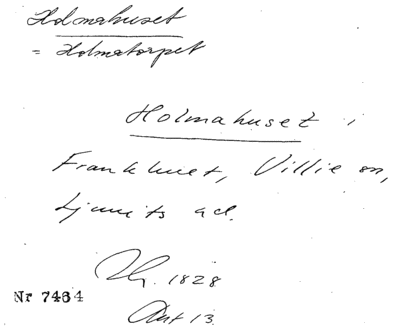 Holmahuset
= Holmatorpet
Holmahuset i
Frankhuset, Villie sn,
Ljunits hd.
1828
Nr 7464
13